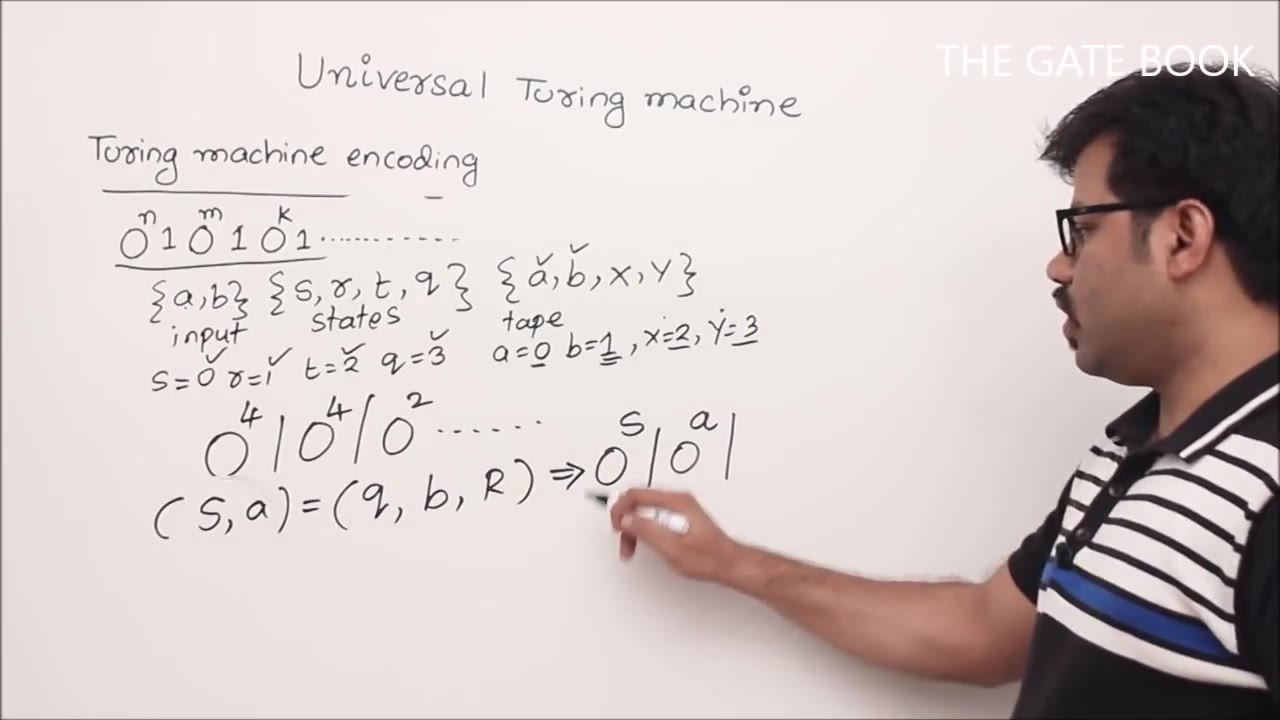 THE GATE BOOK
Universal Turing machine
Turing machine encoding
0ⁿ 1 0ᵐ 1 0ᵏ 1 ...........
{a,b} {s, r, t, q} {a, b, X, Y}
input states tape
s=0 r=1 t=2 q=3 a=0 b=1, X=2, Y=3
0⁴ | 0⁴ | 0² ......
(s, a) = (q, b, R) ⇒ 0ˢ | 0ᵃ |